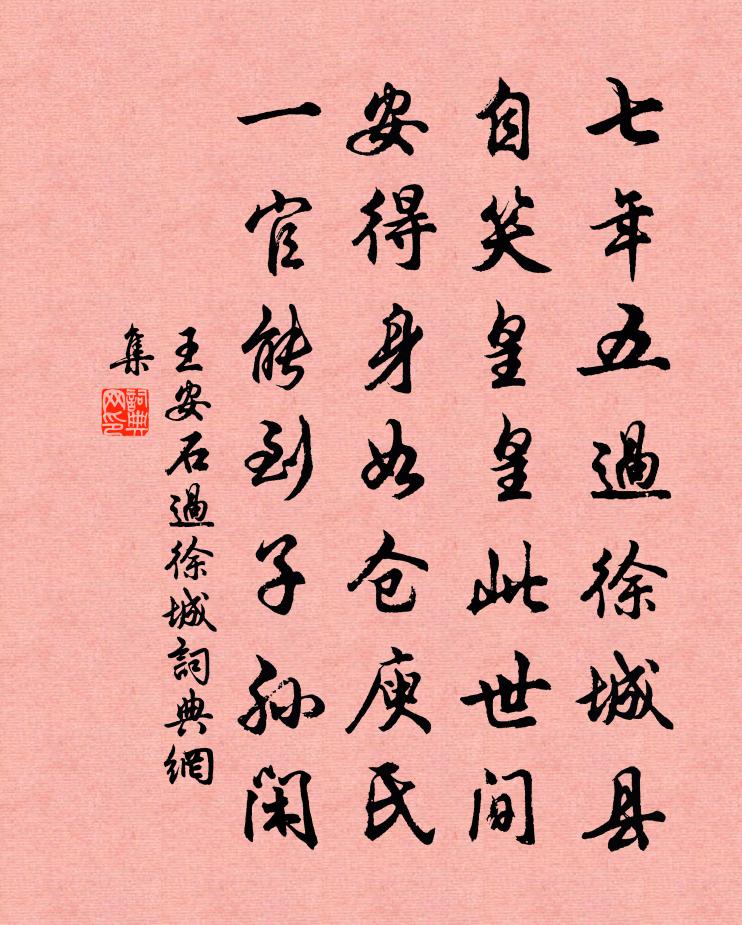 七年五過徐城县
自笑皇皇此世间
安得身如仓庾氏
一官能到子孙闲
王安石過徐城詞典網
集
詞典
网印